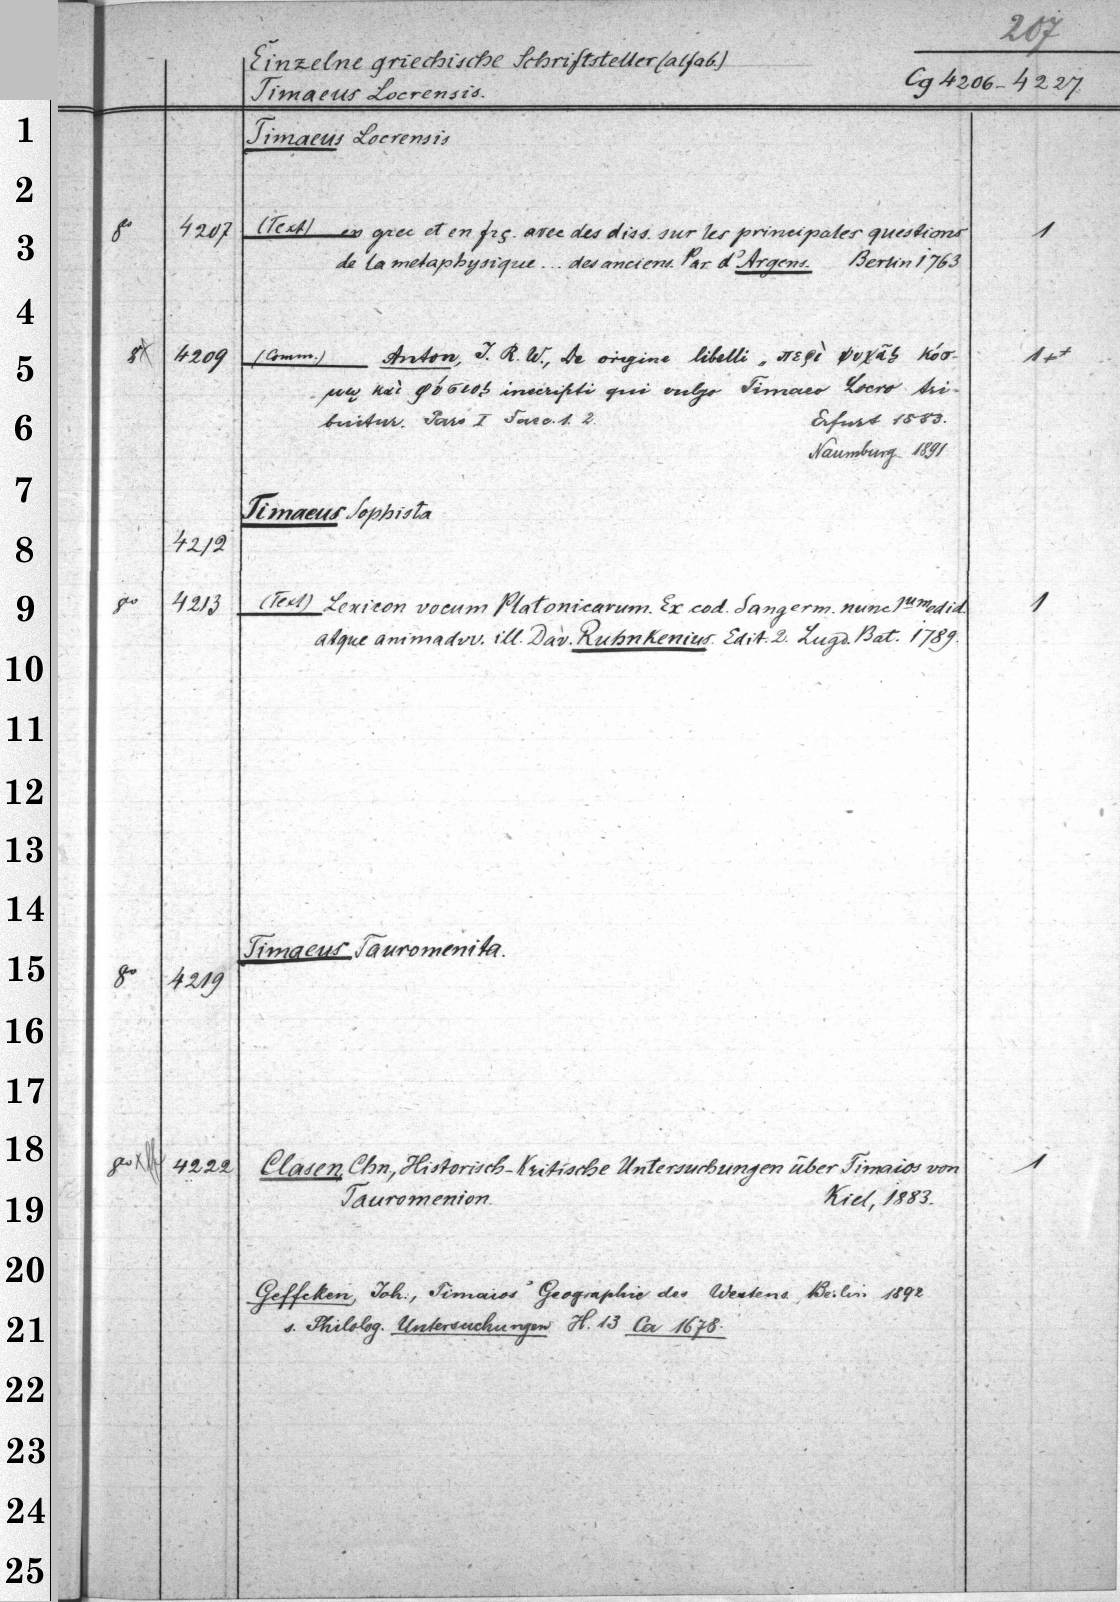 207
Einzelne griechische Schriftsteller (alfab.)
Timaeus Locrensis.
Cg 4206-4227
1
Timaeus Locrensis
2
3
8° 4207 (Text) en grec et en frç. avec des diss. sur les principales questions 1
de la metaphysique ... des anciens. Par d'Argens. Berlin 1763
4
5
8° 4209 (Comm.) Anton, J. R. W., De origine libelli „περὶ ψυχᾶς κόσ- 1
μω καὶ φύσιος inscripti qui vulgo Timaeo Locro tri-
6
buitur. Pars I Fasc. 1. 2. Erfurt 1883.
Naumburg 1891
7
Timaeus Sophista
8
4212
9
8° 4213 (Text) Lexicon vocum Platonicarum. Ex cod. Sangerm. nunc 1um edid. 1
atque animadvv. ill. Dav. Ruhnkenius. Edit. 2. Lugd. Bat. 1789.
10
11
12
13
14
Timaeus Tauromenita.
15
8° 4219
16
17
18
8° 4222 Clasen, Chn., Historisch-Kritische Untersuchungen über Timaios von 1
Tauromenion. Kiel, 1883.
19
20
Geffcken, Joh., Timaios' Geographie des Westens. Berlin 1892
21
s. Philolog. Untersuchungen H. 13 Ca 1678.
22
23
24
25